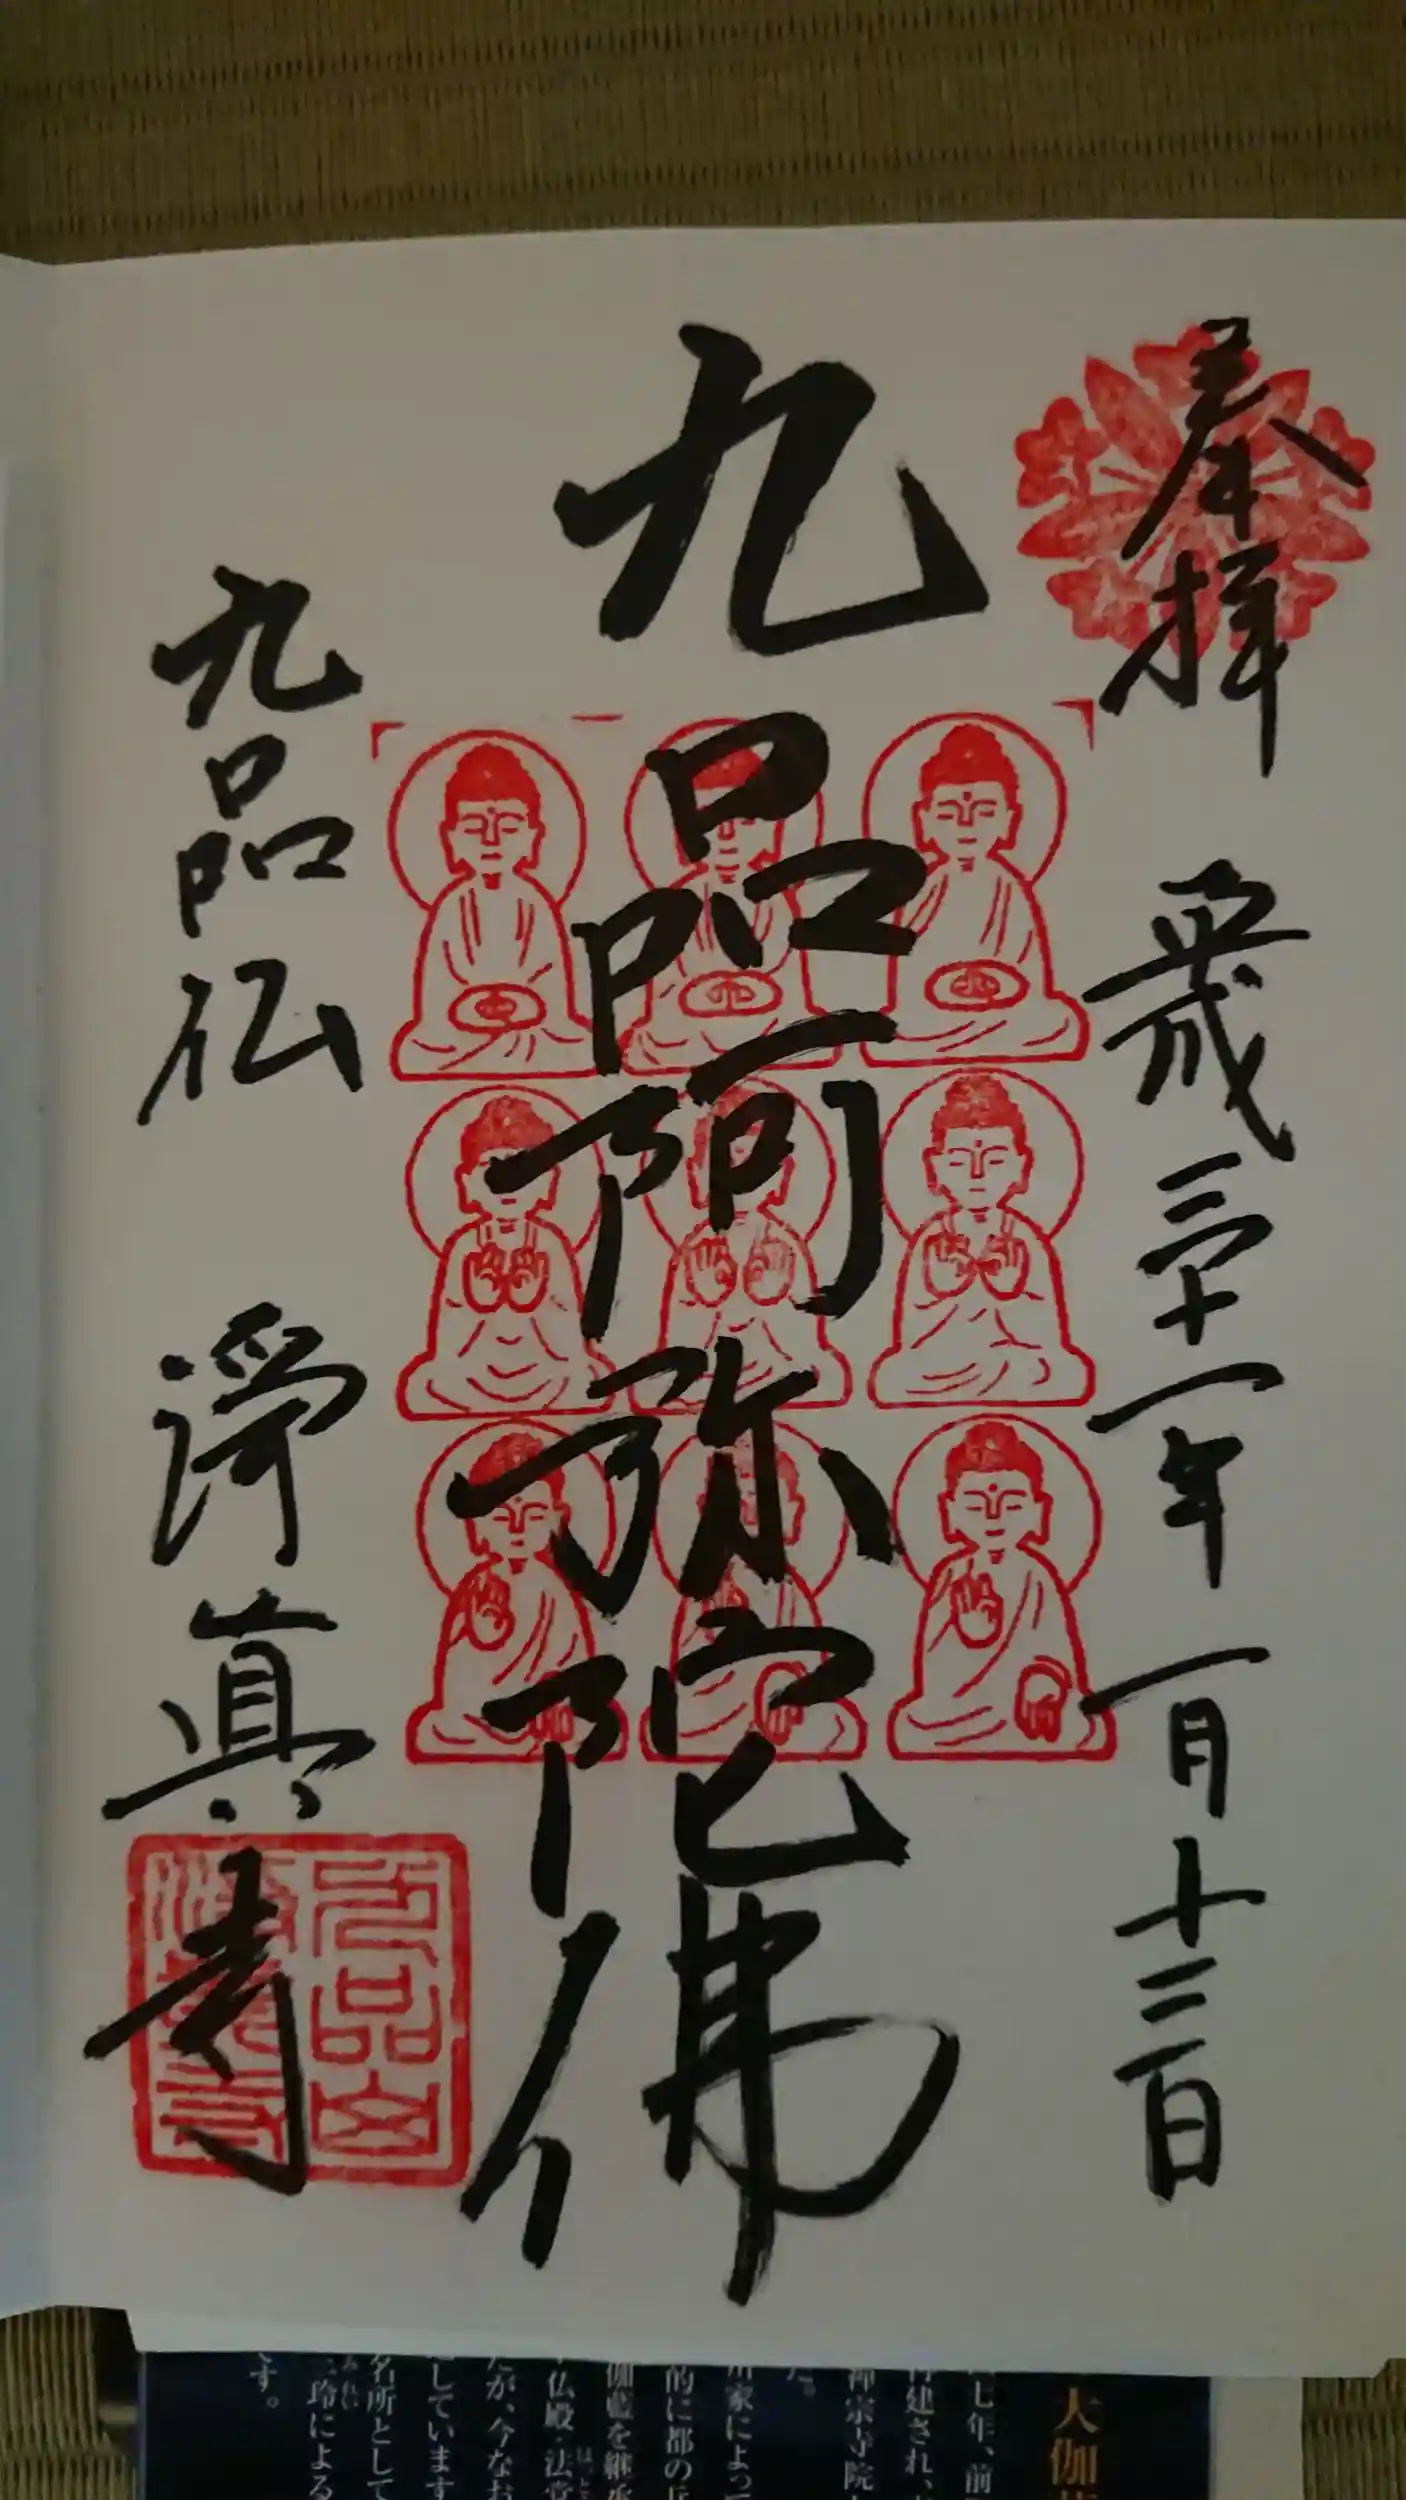 奉拝 歳三十一年一月十三日
九品阿弥陀佛
九品仏 淨真寺
九品山
淨真寺
大伽
七年、前
再建され、
禅宗寺院
た。
川家によって
的に都の
伽藍を継承
仏殿・法堂
たが、今なお
しています
名所として
三玲による
す。